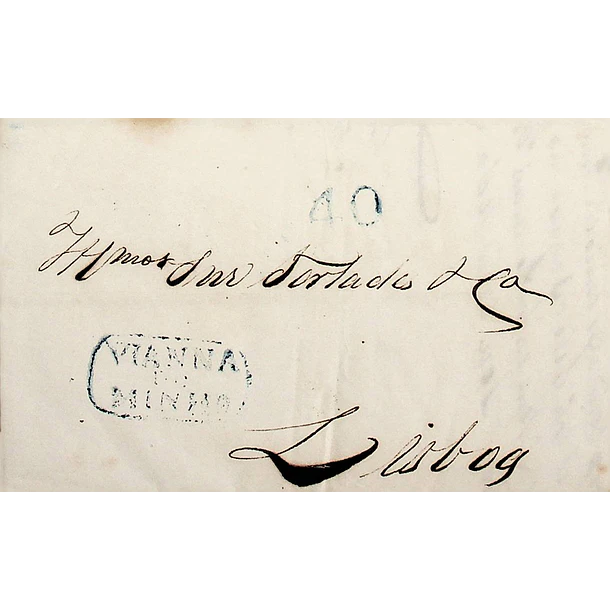 40
Illmos Snrs Tortades & Ca
VIANNA
DO
MINHO
Lisboa